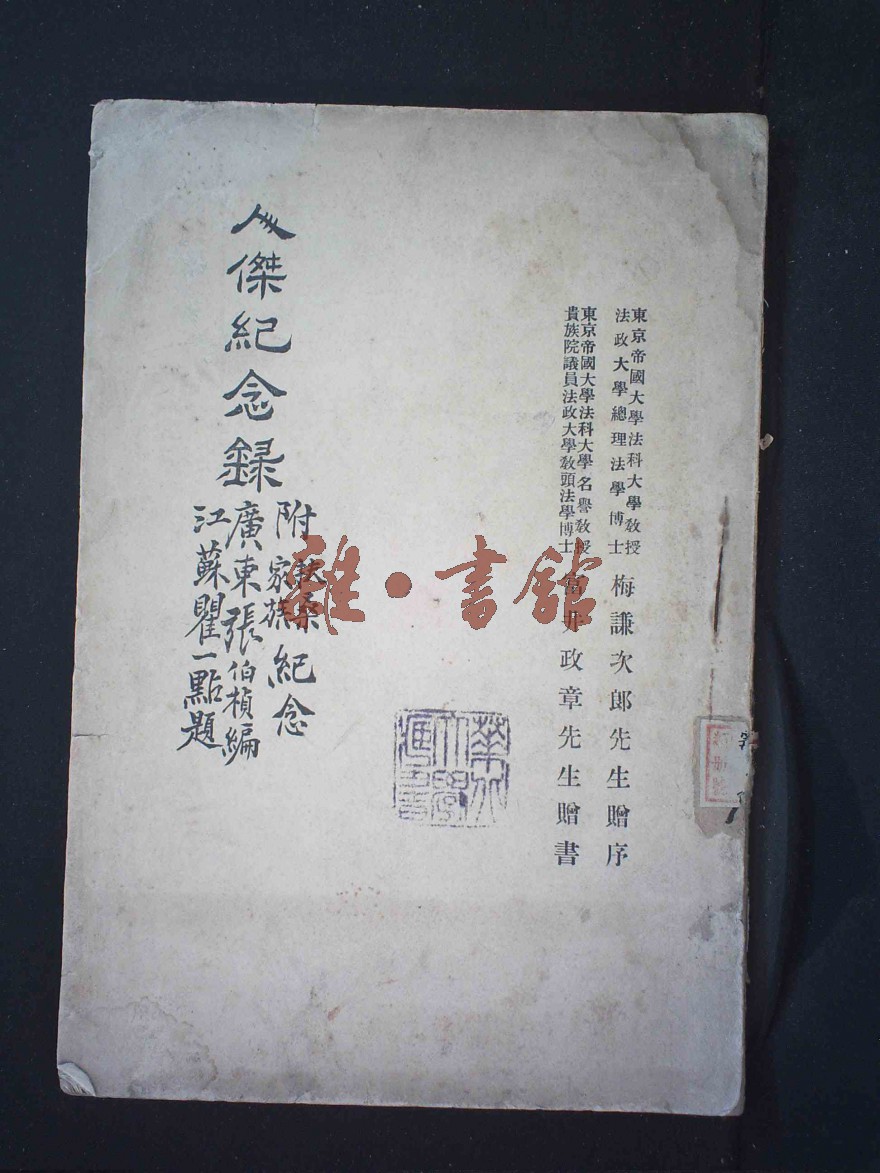 東京帝國大學法科大學教授
法政大學總理法學博士
梅謙次郎先生贈序
東京帝國大學法科大學名譽教授
貴族院議員法政大學教頭法學博士
富井政章先生贈書
人傑紀念録
附扶桑家族紀念
廣東張伯楨編
江蘇瞿一點題
雜·書館